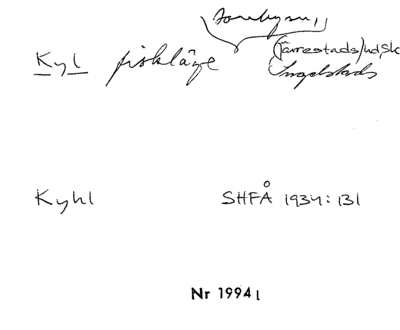 Kyl fiskläge (Järrestads hd, Sk
Ingelstads
Kyhl SHFÅ 1934: 131
Nr 1994